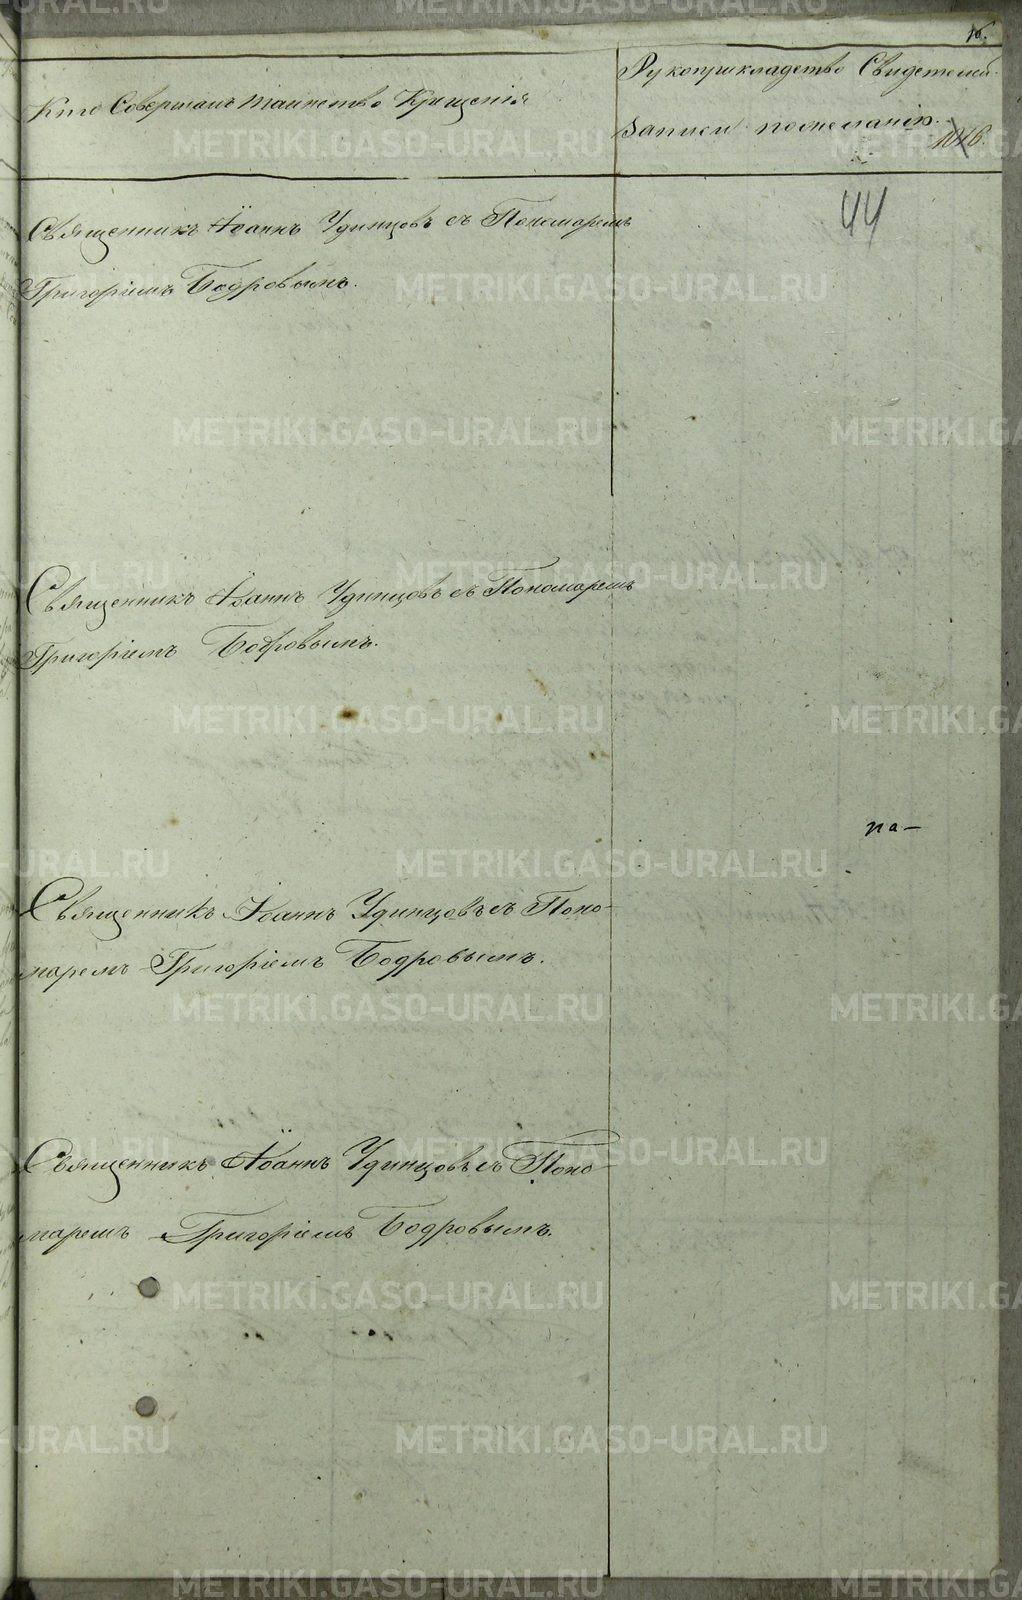 16.
Кто Совершалъ таинство Крещенія
Рукоприкладство Свидетелей
Записи пожеланію.
1016.
44
Священникъ Іоаннъ Удинцовъ съ Пономаремъ
Григоріемъ Бодровымъ.
Священникъ Іоаннъ Удинцовъ съ Пономаремъ
Григоріемъ Бодровымъ.
ра-
Священникъ Іоаннъ Удинцовъ съ Поно-
маремъ Григоріемъ Бодровымъ.
Священникъ Іоаннъ Удинцовъ съ Поно-
маремъ Григоріемъ Бодровымъ.
METRIKI.GASO-URAL.RU